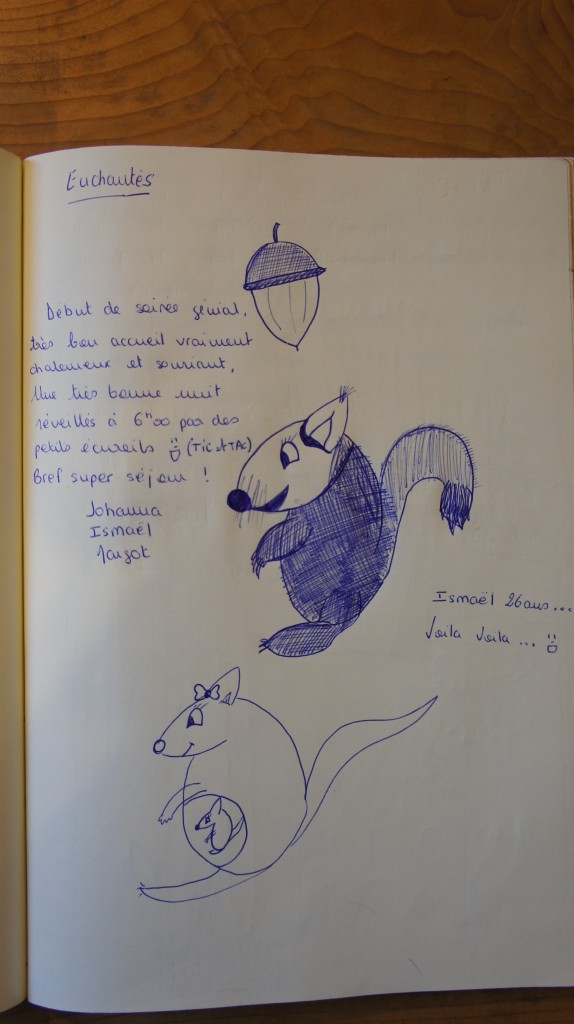 Enchantés
Début de soirée génial,
très bon accueil vraiment
chaleureux et souriant,
Une très bonne nuit
réveillés à 6"00 par des
petits écureils (TIC et TAC)
Bref super séjour !
Johanna
Ismaël
Margot
Ismaël 26 ans...
Voila Voila ...